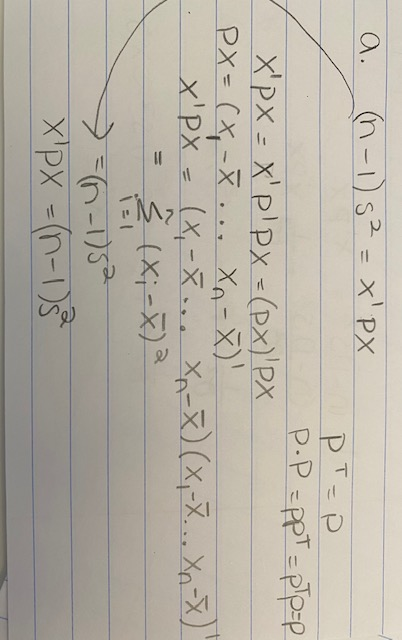 a. (n-1)s² = x'px
pᵀ = p
p·p = ppᵀ = pᵀp = p
x'px = x'p'px = (px)'px
px = (x₁-x̄ ... xₙ-x̄)'
x'px = (x₁-x̄ ... xₙ-x̄)(x₁-x̄ ... xₙ-x̄)'
= Σᵢ₌₁ⁿ (xᵢ-x̄)²
= (n-1)s²
x'px = (n-1)s²